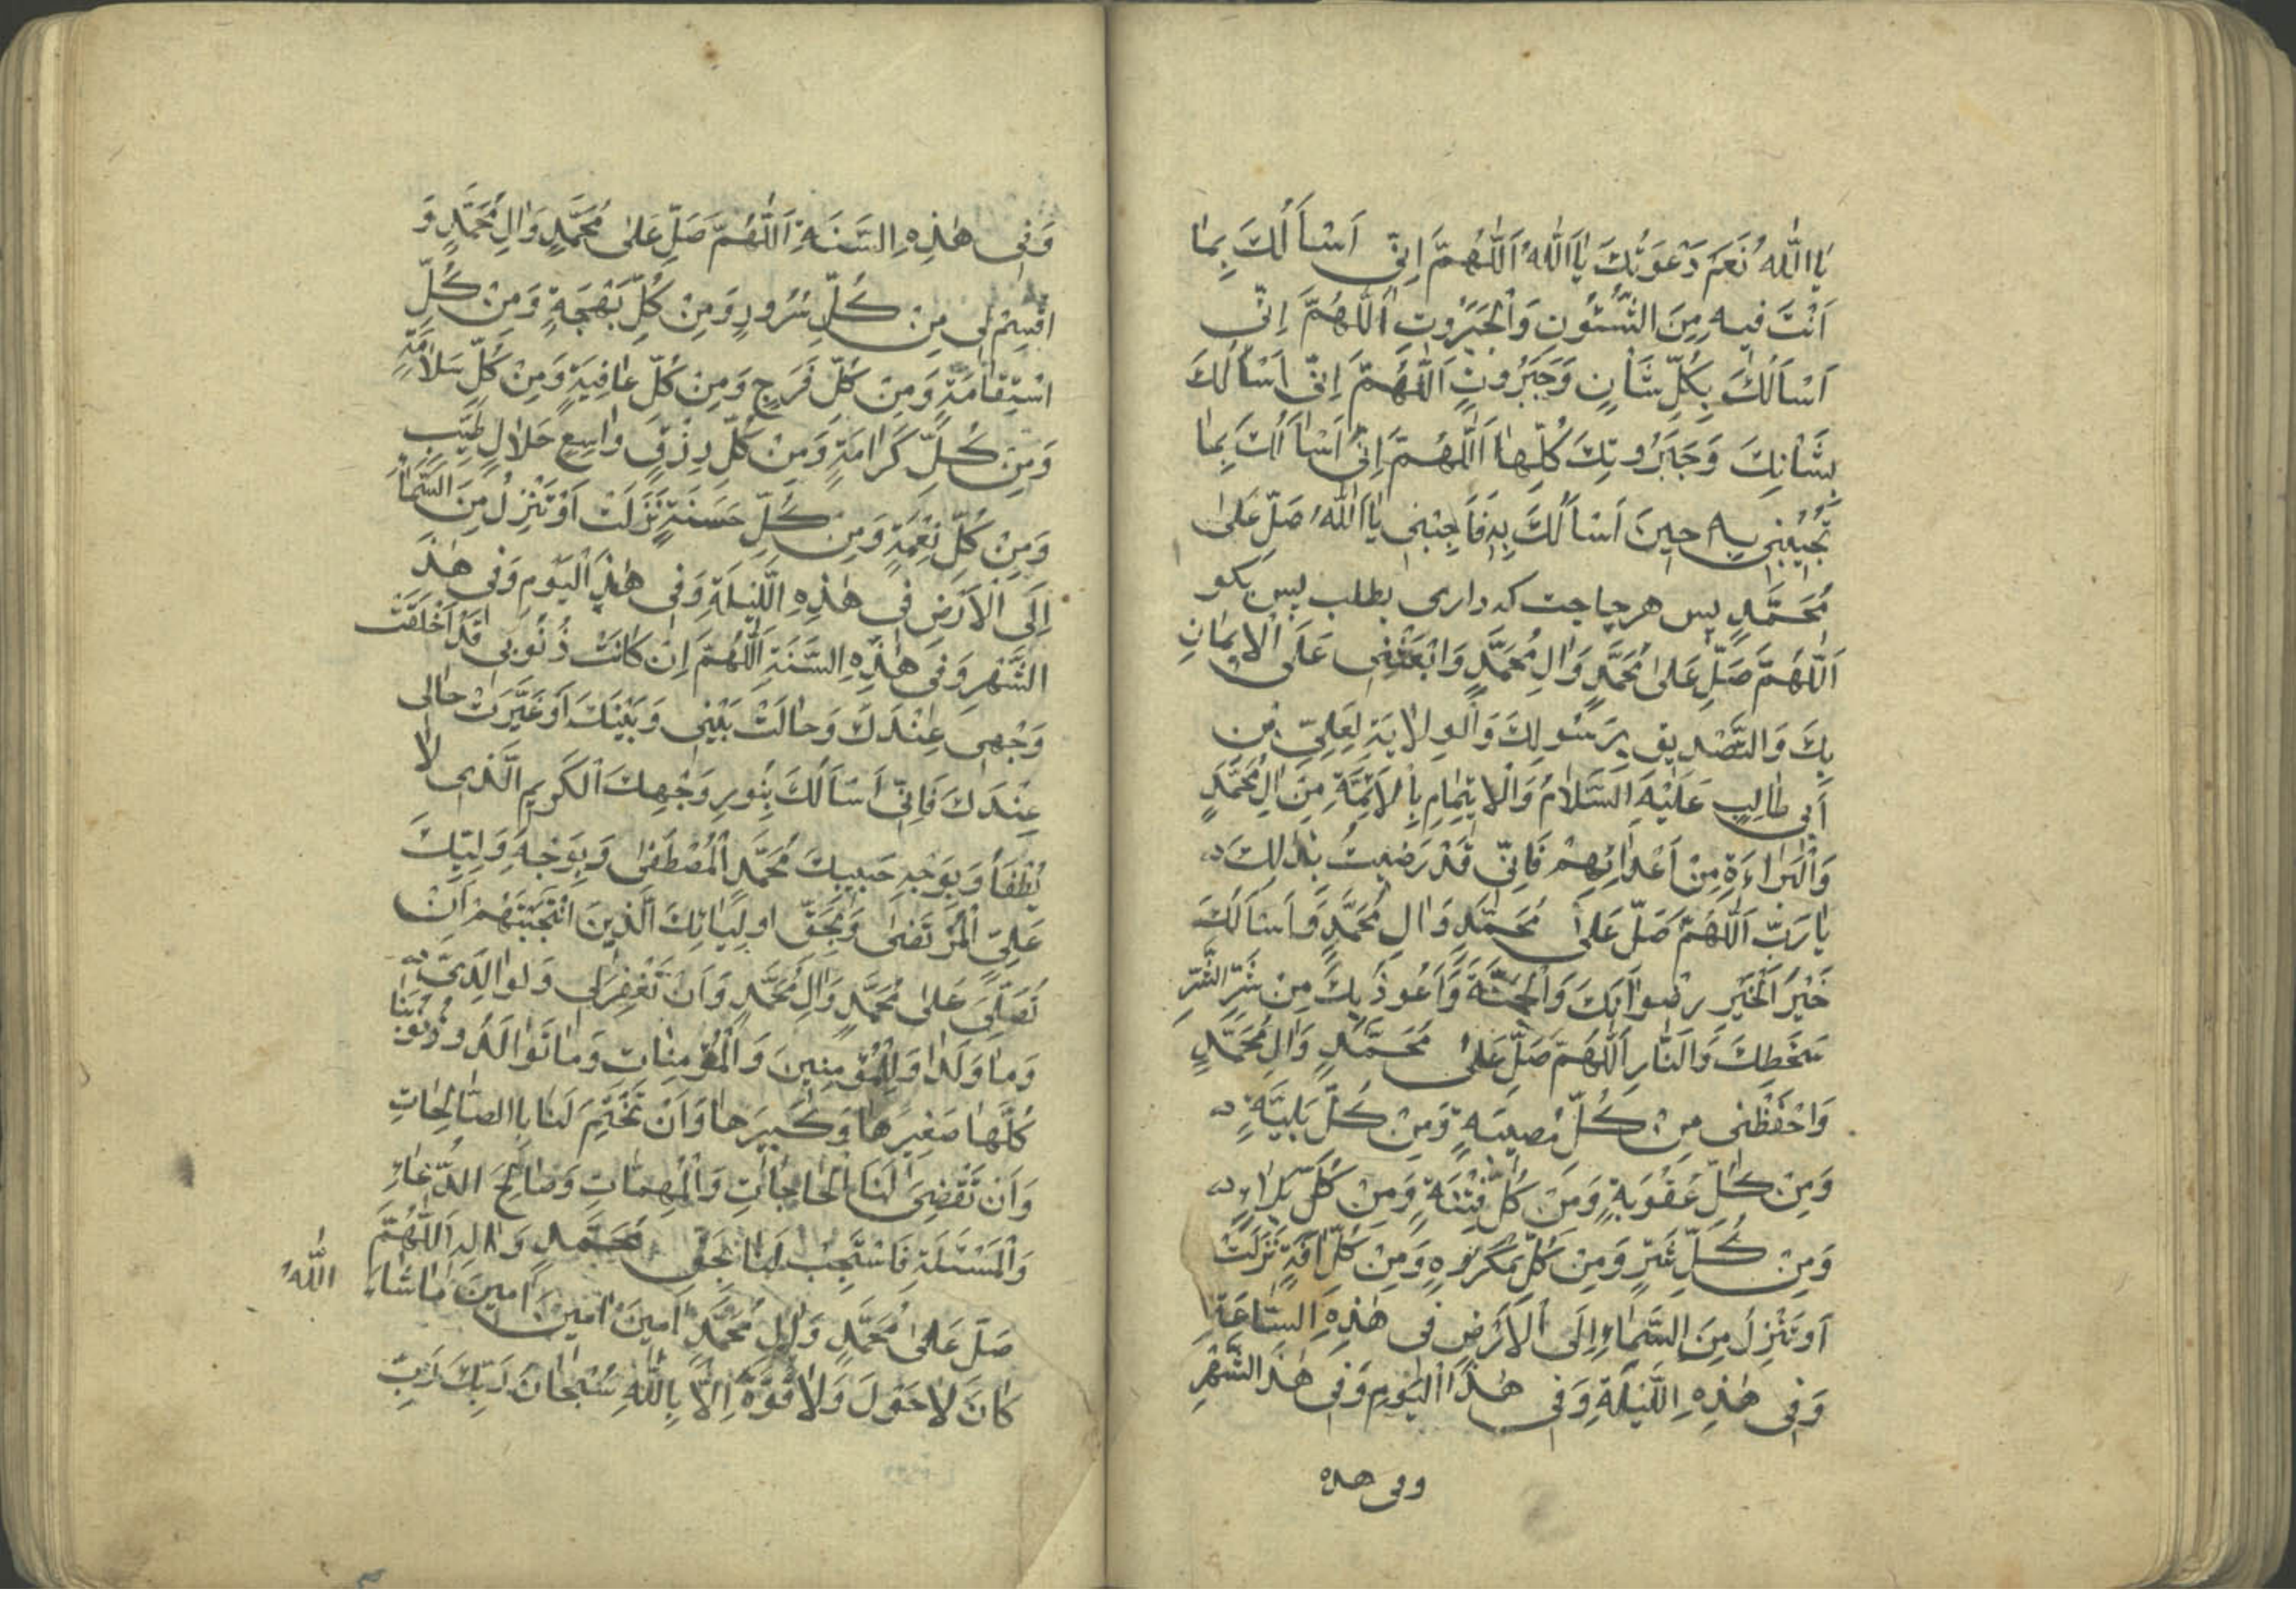 يَا اَللّٰهُ نَعَمْ دَعَوْتُكَ يَا اَللّٰهُ اَللّٰهُمَّ اِنّى اَسْاَلُكَ بِمٰا
اَنْتَ فيهِ مِنَ الشُّئُونِ وَالْجَبَرُوتِ اَللّٰهُمَّ اِنّى
اَسْاَلُكَ بِكُلِّ شَأنٍ وَجَبَرُوتٍ اَللّٰهُمَّ اِنّى اَسْاَلُكَ
بِشَأنِكَ وَجَبَرُوتِكَ كُلِّهٰا اَللّٰهُمَّ اِنّى اَسْاَلُكَ بِمٰا
تُجيبُنى بِهِ حينَ اَسْاَلُكَ بِهِ فَاَجِبْنى يٰا اَللّٰهُ صَلِّ عَلىٰ
مُحَمَّدٍ پس هر حاجت كه دارى بطلب پس بكو
اَللّٰهُمَّ صَلِّ عَلىٰ مُحَمَّدٍ وَاٰلِ مُحَمَّدٍ وَابْعَثْنى عَلَى الْايمٰانِ
بِكَ وَالتَّصْديقِ بِرَسُولِكَ وَالْوِلٰايَةِ لِعَلِىِّ بْنِ
اَبى طٰالِبٍ عَلَيْهِ السَّلٰامُ وَالْايتِمٰامِ بِالْاَئِمَّةِ مِنْ اٰلِ مُحَمَّدٍ
وَالْبَرٰاءَةِ مِنْ اَعْدٰائِهِمْ فَاِنّى قَدْ رَضيتُ بِذٰلِكَ
يٰا رَبِّ اَللّٰهُمَّ صَلِّ عَلىٰ مُحَمَّدٍ وَاٰلِ مُحَمَّدٍ وَاَسْاَلُكَ
خَيْرَ الْخَيْرِ رِضْوٰانَكَ وَالْجَنَّةَ وَاَعُوذُ بِكَ مِنْ شَرِّ الشَّرِّ
سَخَطِكَ وَالنّٰارِ اَللّٰهُمَّ صَلِّ عَلىٰ مُحَمَّدٍ وَاٰلِ مُحَمَّدٍ
وَاحْفَظْنى مِنْ كُلِّ مُصيبَةٍ وَمِنْ كُلِّ بَلِيَّةٍ
وَمِنْ كُلِّ عُقُوبَةٍ وَمِنْ كُلِّ فِتْنَةٍ وَمِنْ كُلِّ بَلٰاءٍ
وَمِنْ كُلِّ شَرٍّ وَمِنْ كُلِّ مَكْرُوهٍ وَمِنْ كُلِّ اٰفَةٍ نَزَلَتْ
اَوْ تَنْزِلُ مِنَ السَّمٰاءِ اِلَى الْاَرْضِ فى هٰذِهِ السّٰاعَةِ
وَفى هٰذِهِ اللَّيْلَةِ وَفى هٰذَا الْيَوْمِ وَفى هٰذَ الشَّهْرِ
وفى هذه
وَفى هٰذِهِ السَّنَةِ اَللّٰهُمَّ صَلِّ عَلىٰ مُحَمَّدٍ وَاٰلِ مُحَمَّدٍ وَ
اقْسِمْ لى مِنْ كُلِّ سُرُورٍ وَمِنْ كُلِّ بَهْجَةٍ وَمِنْ كُلِّ
اسْتِقٰامَةٍ وَمِنْ كُلِّ فَرَجٍ وَمِنْ كُلِّ عٰافِيَةٍ وَمِنْ كُلِّ سَلٰامَةٍ
وَمِنْ كُلِّ كَرٰامَةٍ وَمِنْ كُلِّ رِزْقٍ وٰاسِعٍ حَلٰالٍ طَيِّبٍ
وَمِنْ كُلِّ نِعْمَةٍ وَمِنْ كُلِّ حَسَنَةٍ نَزَلَتْ اَوْ تَنْزِلُ مِنَ السَّمٰاءِ
اِلَى الْاَرْضِ فى هٰذِهِ اللَّيْلَةِ وَفى هٰذَ الْيَوْمِ وَفى هٰذَ
الشَّهْرِ وَفى هٰذِهِ السَّنَةِ اَللّٰهُمَّ اِنْ كٰانَتْ ذُنُوبى قَدْ اَخْلَقَتْ
وَجْهى عِنْدَكَ وَحٰالَتْ بَيْنى وَبَيْنَكَ اَوْ غَيَّرَتْ حٰالى
عِنْدَكَ فَاِنّى اَسْاَلُكَ بِنُورِ وَجْهِكَ الْكَريمِ الَّذى لٰا
يُطْفَأُ وَبِوَجْهِ حَبيبِكَ مُحَمَّدٍ الْمُصْطَفىٰ وَبِوَجْهِ وَلِيِّكَ
عَلِىٍّ الْمُرْتَضىٰ وَبِحَقِّ اَوْلِيٰائِكَ الَّذينَ انْتَجَبْتَهُمْ اَنْ
تُصَلِّىَ عَلىٰ مُحَمَّدٍ وَاٰلِ مُحَمَّدٍ وَاَنْ تَغْفِرَ لى وَلِوٰالِدَىَّ
وَمٰا وَلَدٰا وَلِلْمُؤْمِنينَ وَالْمُؤْمِنٰاتِ وَمٰا تَوٰالَدُوا ذُنُوبَنٰا
كُلَّهٰا صَغيرَهٰا وَكَبيرَهٰا وَاَنْ تَخْتِمَ لَنٰا بِالصّٰالِحٰاتِ
وَاَنْ تَقْضِىَ لَنَا الْحٰاجٰاتِ وَالْمُهِمّٰاتِ وَصٰالِحَ الدُّعٰاءِ
وَالْمَسْئَلَةِ فَاسْتَجِبْ لَنٰا بِحَقِّ مُحَمَّدٍ وَاٰلِهِ اَللّٰهُمَّ
صَلِّ عَلىٰ مُحَمَّدٍ وَاٰلِ مُحَمَّدٍ اٰمينَ اٰمينَ اٰمينَ مٰا شٰاءَ اللّٰهُ
كٰانَ لٰا حَوْلَ وَلٰا قُوَّةَ اِلّٰا بِاللّٰهِ سُبْحٰانَ رَبِّكَ رَبِّ